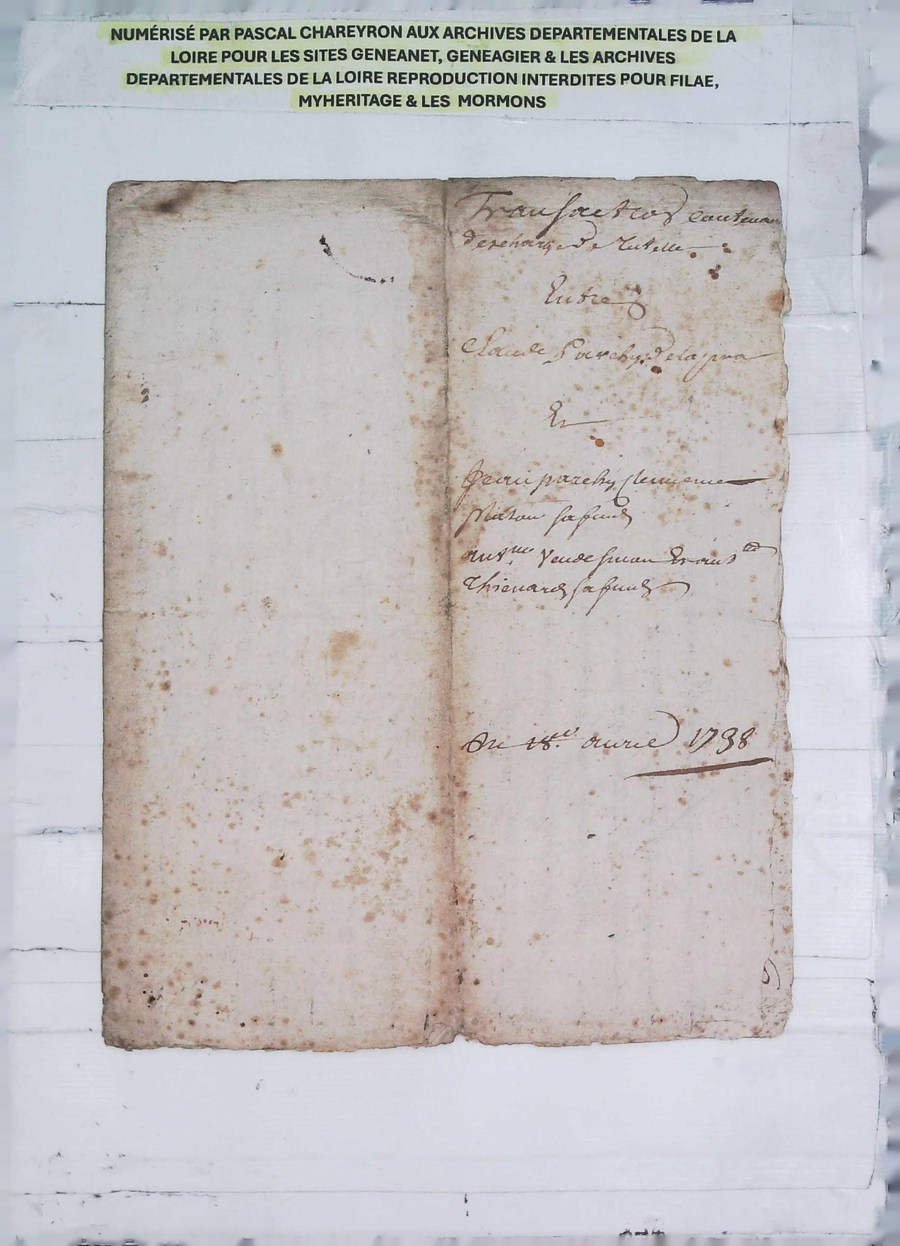 NUMÉRISÉ PAR PASCAL CHAREYRON AUX ARCHIVES DEPARTEMENTALES DE LA
LOIRE POUR LES SITES GENEANET, GENEAGIER & LES ARCHIVES
DEPARTEMENTALES DE LA LOIRE REPRODUCTION INTERDITES POUR FILAE,
MYHERITAGE & LES MORMONS
Transaction contenan
descharge De Tutelle
Entre
Claude Parchy Delapra
Et
Jean parchy
sa fme
Thienard sa fme
Du 18e avril 1738